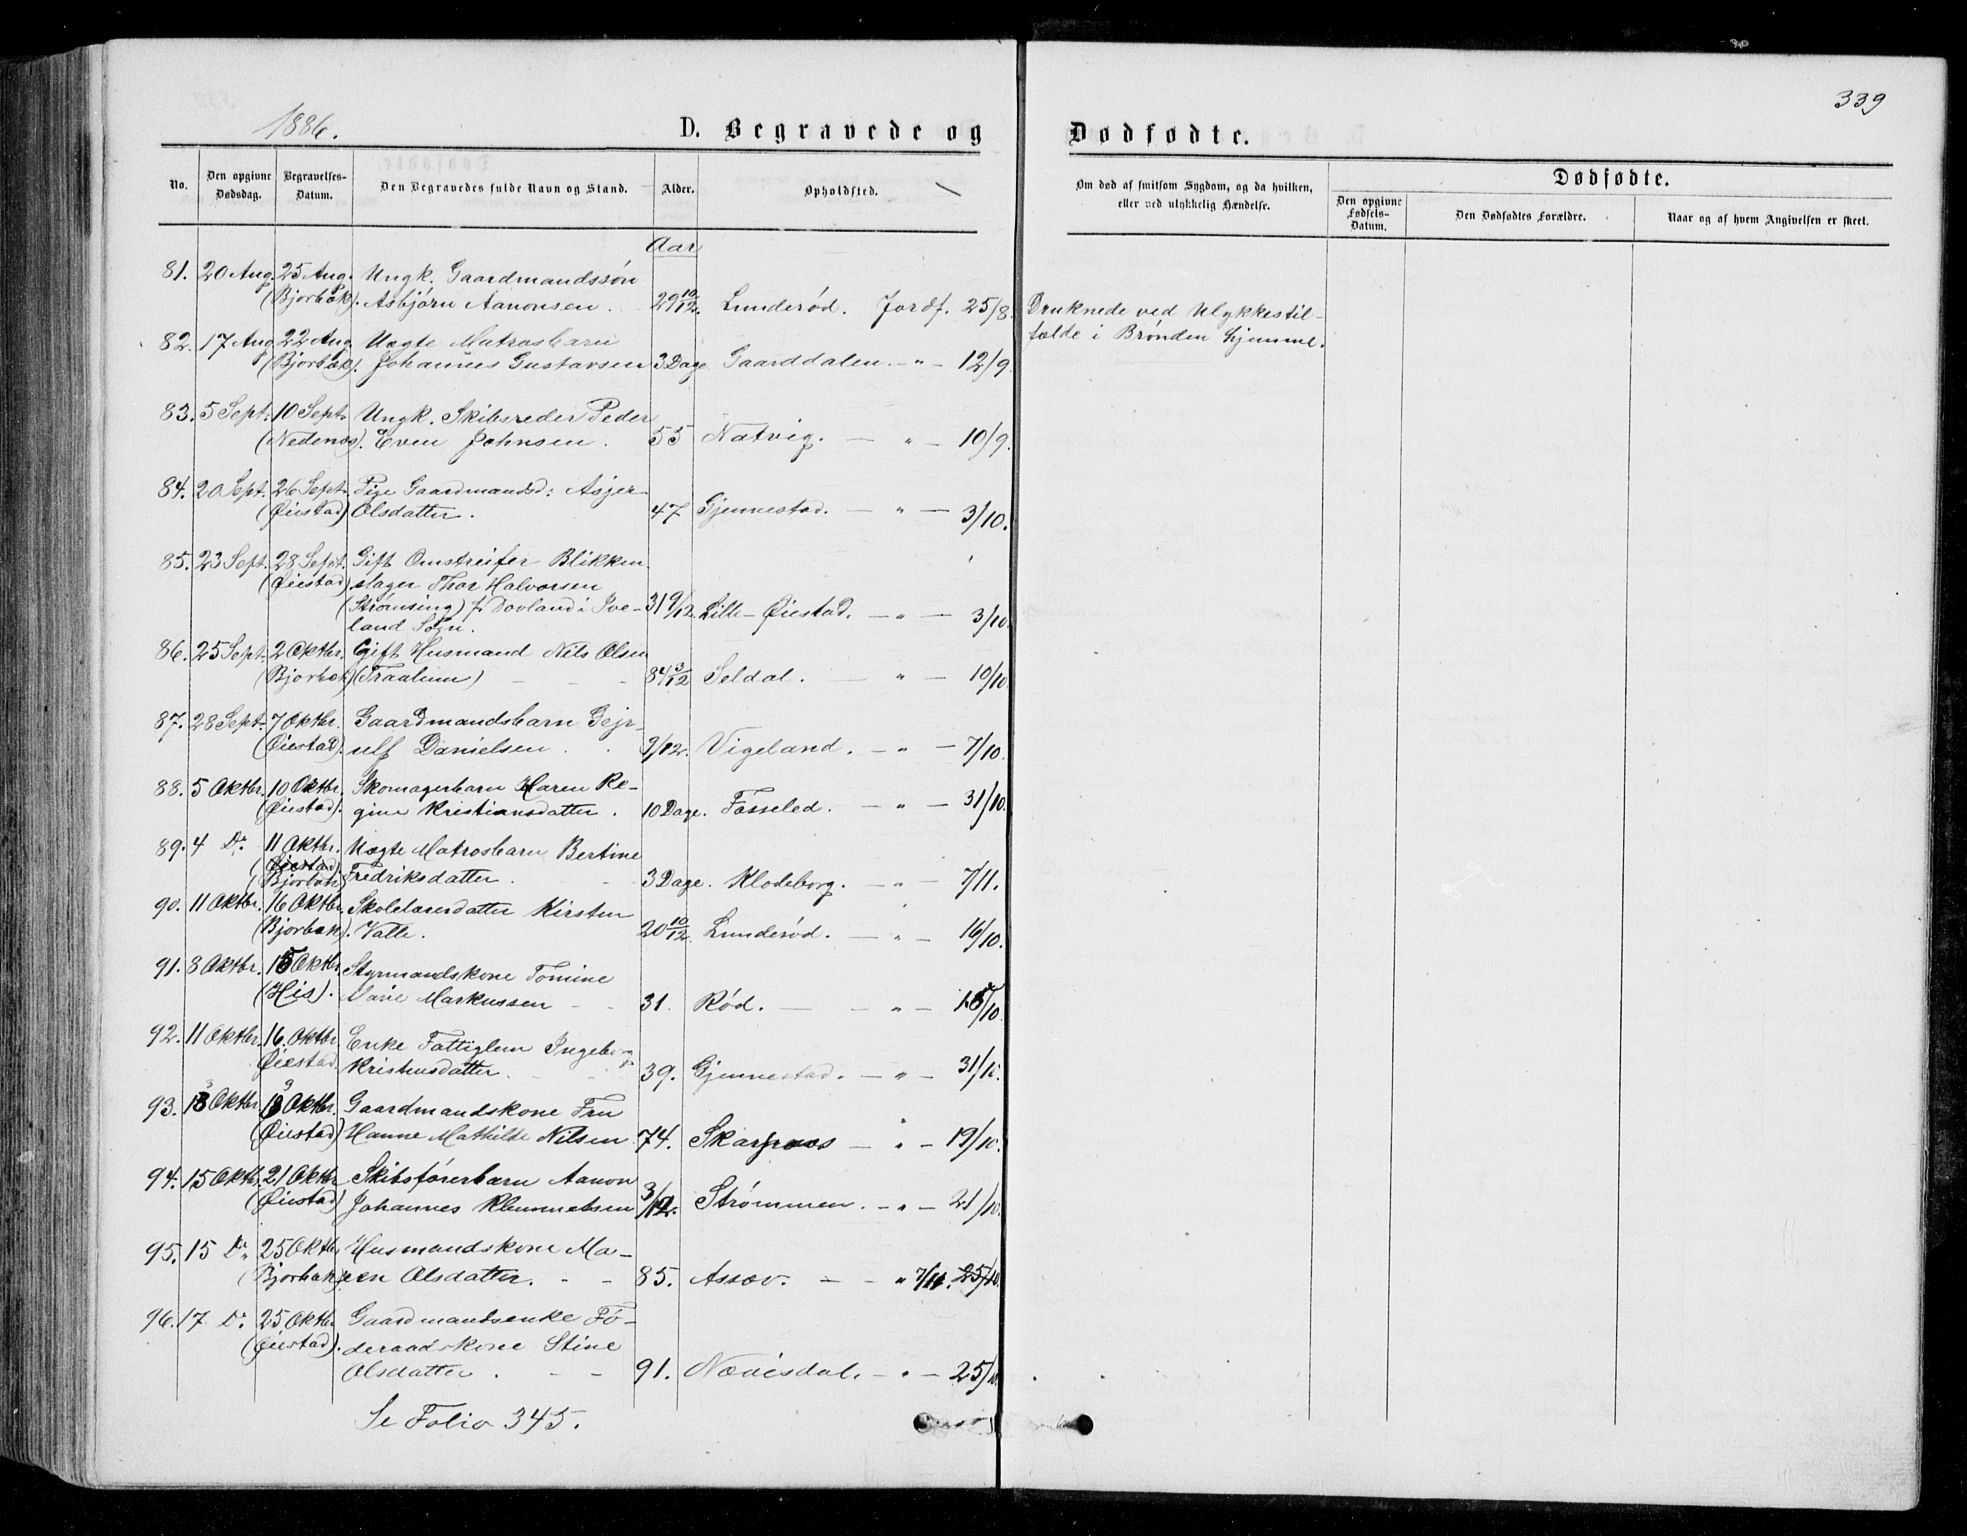 339
1886.
D. Begravede og Dødfødte.
No. Den opgivne Dødsdag. Begravelses-Datum. Den Begravedes fulde Navn og Stand. Alder. Opholdsted.
Om død af smitsom Sygdom, og da hvilken, eller ved ulykkelig Hændelse.
Dødfødte.
Den opgivne Fødsels-Datum. Den Dødfødtes Forældre. Naar og af hvem Angivelsen er skeet.
Aar
81. 20 Aug. 25 Aug. Ungk. Gaardmandssøn
(Bjorbæk). Asbjørn Aanonsen. 29 10/12. Lunderød. Jordf. 25/8. Druknede ved Ulykkestil-
fælde i Brønden hjemme.
82. 17 Aug. 22 Aug. Uægte Matrosbarn
(Bjorbæk). Johannes Gustavsen 3 Dage. Gaarddalen. - " - 12/9
83. 5 Sept. 10 Sept. Ungk. Skibsreder Peder
(Nedenæs). Even Johnsen. 55 Natvig. — " — 10/9.
84. 20 Sept. 26 Sept. Pige Gaardmandsd: Asjer
(Øiestad) Olsdatter. 47 Gjennestad. — " — 3/10.
85. 23 Sept. 28 Sept. Gift Omstreifer Blikken
(Øiestad) slager Thor Halvorsen
(Strømsing) f. Dovland i Ive-
land Sogn. 31 9/12. Lille-Øiestad. - " — 3/10.
86. 25 Sept. 2 Oktbr. Gift Husmand Nils Olsen
(Bjorbæk) (Traalum) - - - 84 3/12 Seldal. — " — 10/10
87. 28 Sept. 7 Oktbr. Gaardmandsbarn Gejr-
(Øiestad). ulf Danielsen. 9/12. Vigeland. - " — 7/10.
88. 5 Oktbr. 10 Oktbr. Skomagerbarn Karen Re-
(Øiestad). gine Kristiansdatter. 10 Dage. Fosseled. — " — 31/10.
89. 4 Do. 11 Oktbr. Uægte Matrosbarn Bertine
(Øiestad)
(Bjorbæk) Fredriksdatter. - - 3 Dage. Klodeborg. — " — 7/11.
90. 11 Oktbr. 16 Oktbr. Skolelærerdatter Kirsten
(Bjorbæk). Valle. 20 10/12. Lunderød. — " — 16/10.
91. 8 Oktbr. 15 Oktbr. Styrmandskone Tomine
(His). Marie Markussen - - 31. Rød. — — " — 15/10.
92. 11 Oktbr. 16. Oktbr. Enke Fattiglem Ingeborg
Øiestad. Kristensdatter. 39. Gjennestad. — " — 31/10.
93. 13 Oktbr. 19 Oktbr. Gaardmandskone Fru
(Øiestad) Hanne Mathilde Nilsen 74. Skarpnæs — " — 19/10.
94. 15 Oktbr. 21 Oktbr. Skibsførerbarn Aanon
(Øiestad) Johannes Klemmetsen 3/12. Strømmen. - " — 21/10.
95. 15 Do. 25 Oktbr. Husmandskone Ma-
(Bjorbæk). ren Olsdatter. - - 85. Assev. — - " 7/11. 25/10.
96. 17 Do. 25 Oktbr. Gaardmandsenke Fø-
(Øiestad). deraadskone Stine
Olsdatter. - - 91. Nævisdal. - " — 25/10
Se Folio 345.